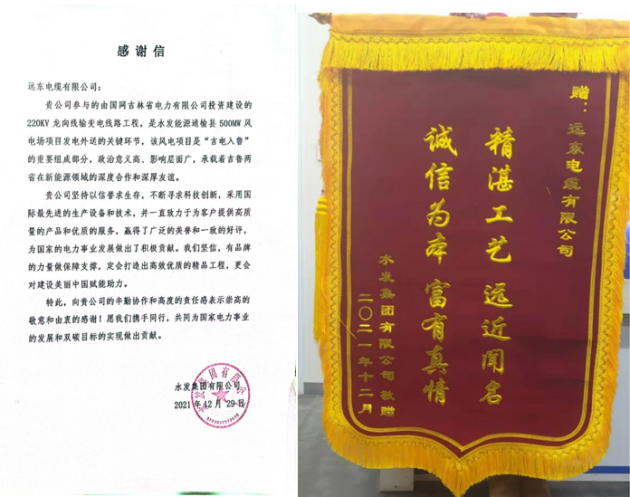 感谢信
远东电缆有限公司：
贵公司参与的由国网吉林省电力有限公司投资建设的
220KV 龙向线输变电线路工程，是水发能源通榆县 500MW 风
电场项目发电外送的关键环节，该风电项目是“吉电入鲁”
的重要组成部分，政治意义高、影响层面广，承载着吉鲁两
省在新能源领域的深度合作和深厚友谊。
贵公司坚持以信誉求生存，不断寻求科技创新，采用国
际最先进的生产设备和技术，并一直致力于为客户提供高质
量的产品和优质的服务，赢得了广泛的美誉和一致的好评，
为国家的电力事业发展做出了积极贡献。我们坚信，有品牌
的力量做保障支撑，定会打造出高效优质的精品工程，更会
对建设美丽中国赋能助力。
特此，向贵公司的辛勤协作和高度的责任感表示崇高的
敬意和由衷的感谢！愿我们携手同行，共同为国家电力事业
的发展和双碳目标的实现做出贡献。
水发集团有限公司
2021 年 12 月 29 日
赠：远东电缆有限公司
精湛工艺 远近闻名
诚信为本 富有真情
水发集团有限公司敬赠
二〇二一年十二月